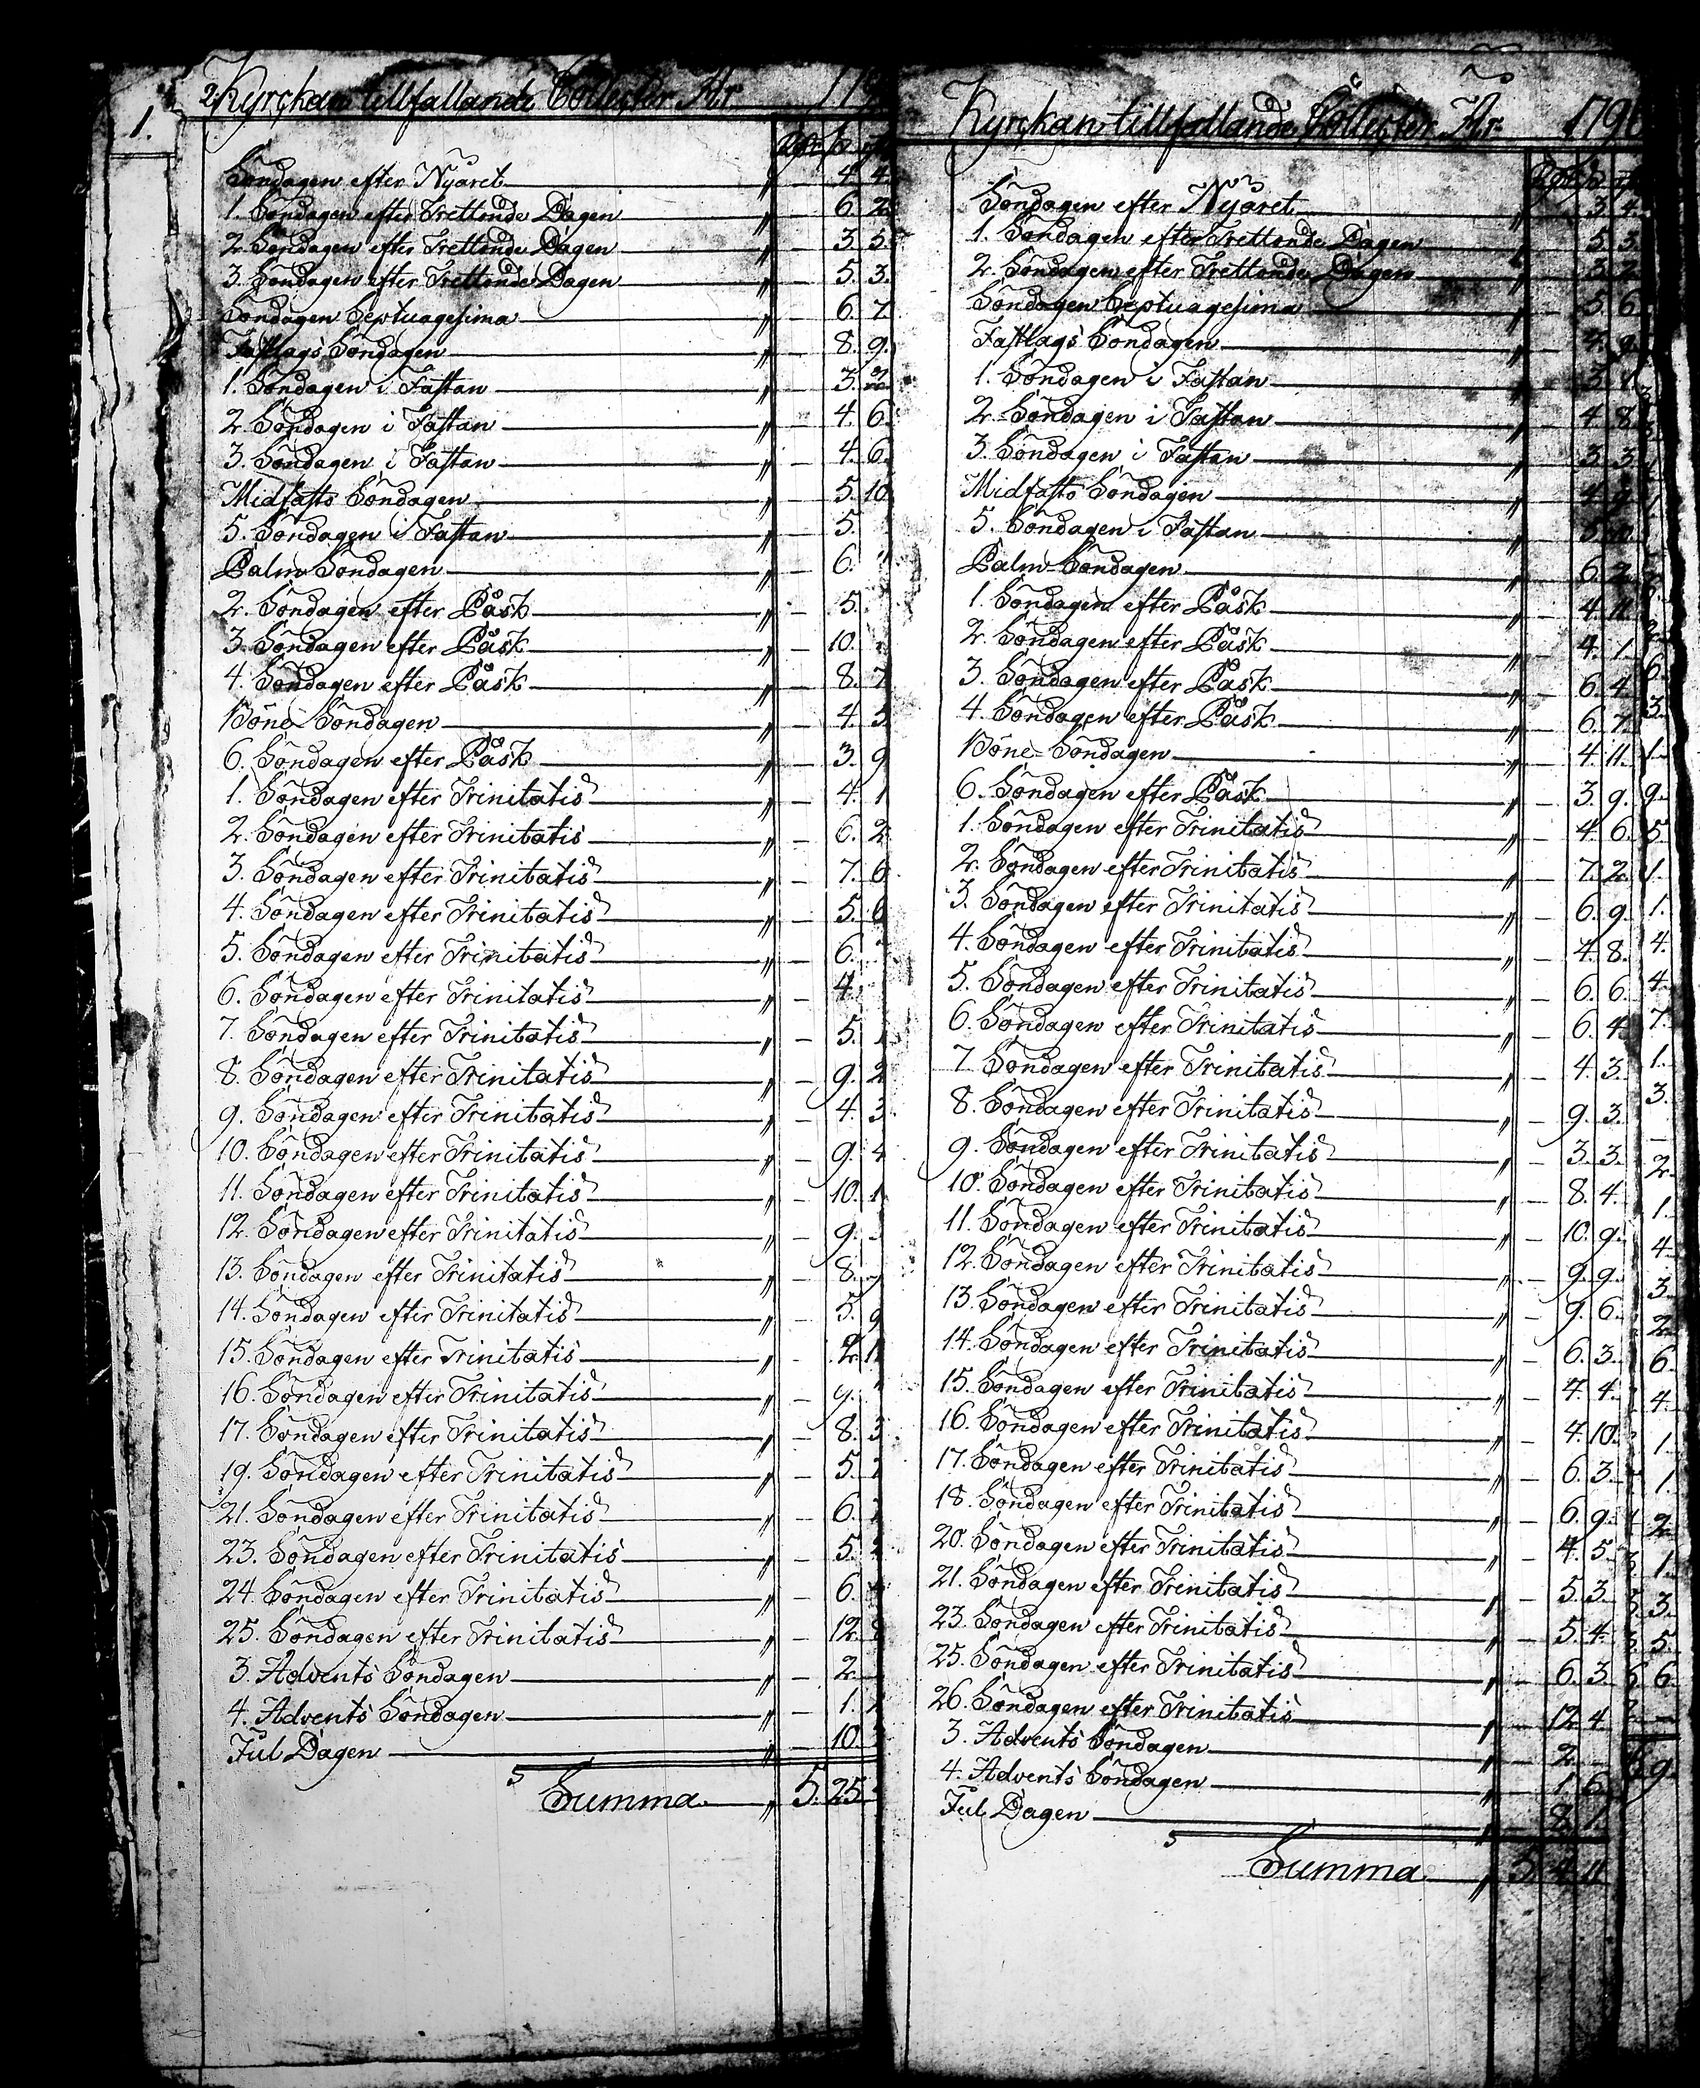 1.
2.
Kyrckan tillfallande Collecter År
Söndagen efter Nyåret 4. 4.
1. Söndagen efter Trettonde Dagen 6. 2.
2. Söndagen efter Trettonde Dagen 3. 5.
3. Söndagen efter Trettonde Dagen 5. 3.
Söndagen Septuagesima 6. 7
Fastlags Söndagen 8. 9.
1. Söndagen i Fastan 3.
2. Söndagen i Fastan 4. 6.
3. Söndagen i Fastan 4. 6.
Midfasto Söndagen 5. 10
5. Söndagen i Fastan 5.
Palm Söndagen 6.
2. Söndagen efter Påsk 5.
3. Söndagen efter Påsk 10.
4. Söndagen efter Påsk 8. 7
Böne Söndagen 4. 5
6. Söndagen efter Påsk 3. 9
1. Söndagen efter Trinitatis 4. 1
2. Söndagen efter Trinitatis 6. 2
3. Söndagen efter Trinitatis 7. 6
4. Söndagen efter Trinitatis 5. 6
5. Söndagen efter Trinitatis 6.
6. Söndagen efter Trinitatis 4.
7. Söndagen efter Trinitatis 5.
8. Söndagen efter Trinitatis 9. 2
9. Söndagen efter Trinitatis 4. 3
10. Söndagen efter Trinitatis 9. 4
11. Söndagen efter Trinitatis 10. 1
12. Söndagen efter Trinitatis 9.
13. Söndagen efter Trinitatis 8.
14. Söndagen efter Trinitatis 5. 9
15. Söndagen efter Trinitatis
16. Söndagen efter Trinitatis 9.
17. Söndagen efter Trinitatis 8. 3
19. Söndagen efter Trinitatis 5.
21. Söndagen efter Trinitatis 6.
23. Söndagen efter Trinitatis 5.
24. Söndagen efter Trinitatis 6.
25. Söndagen efter Trinitatis 12.
3. Advents Söndagen 2.
4. Advents Söndagen 1.
Jul Dagen 10.
Summa 5. 25.
Kyrckan tillfallande Collecter År 179
Söndagen efter Nyåret 3. 4.
1. Söndagen efter Trettonde Dagen 5. 3.
2. Söndagen efter Trettonde Dagen 3.
Söndagen Septuagesima 5. 6
Fastlags Söndagen
1. Söndagen i Fastan 3.
2. Söndagen i Fastan 4. 8.
3. Söndagen i Fastan 3. 3.
Midfasto Söndagen
5. Söndagen i Fastan
Palm Söndagen 6. 2.
1. Söndagen efter Påsk 4. 11.
2. Söndagen efter Påsk 4. 1.
3. Söndagen efter Påsk 6. 4.
4. Söndagen efter Påsk 6. 7.
Böne Söndagen 4. 11.
6. Söndagen efter Påsk 3. 9.
1. Söndagen efter Trinitatis 4. 6.
2. Söndagen efter Trinitatis 7. 2.
3. Söndagen efter Trinitatis 6. 9.
4. Söndagen efter Trinitatis 4. 8.
5. Söndagen efter Trinitatis 6. 6.
6. Söndagen efter Trinitatis 6. 4.
7. Söndagen efter Trinitatis 4. 3.
8. Söndagen efter Trinitatis 9. 3.
9. Söndagen efter Trinitatis 3. 3.
10. Söndagen efter Trinitatis 8. 4.
11. Söndagen efter Trinitatis 10. 9.
12. Söndagen efter Trinitatis 9. 9.
13. Söndagen efter Trinitatis 9. 6.
14. Söndagen efter Trinitatis 6. 3.
15. Söndagen efter Trinitatis 4. 4.
16. Söndagen efter Trinitatis 4. 10.
17. Söndagen efter Trinitatis 6. 3.
18. Söndagen efter Trinitatis 6. 9.
20. Söndagen efter Trinitatis 4. 5.
21. Söndagen efter Trinitatis 5. 3.
23. Söndagen efter Trinitatis 5. 4.
25. Söndagen efter Trinitatis 6. 3.
26. Söndagen efter Trinitatis 12. 4.
3. Advents Söndagen 2.
4. Advents Söndagen 1. 6.
Jul Dagen 8. 1.
Summa 5. 4. 11